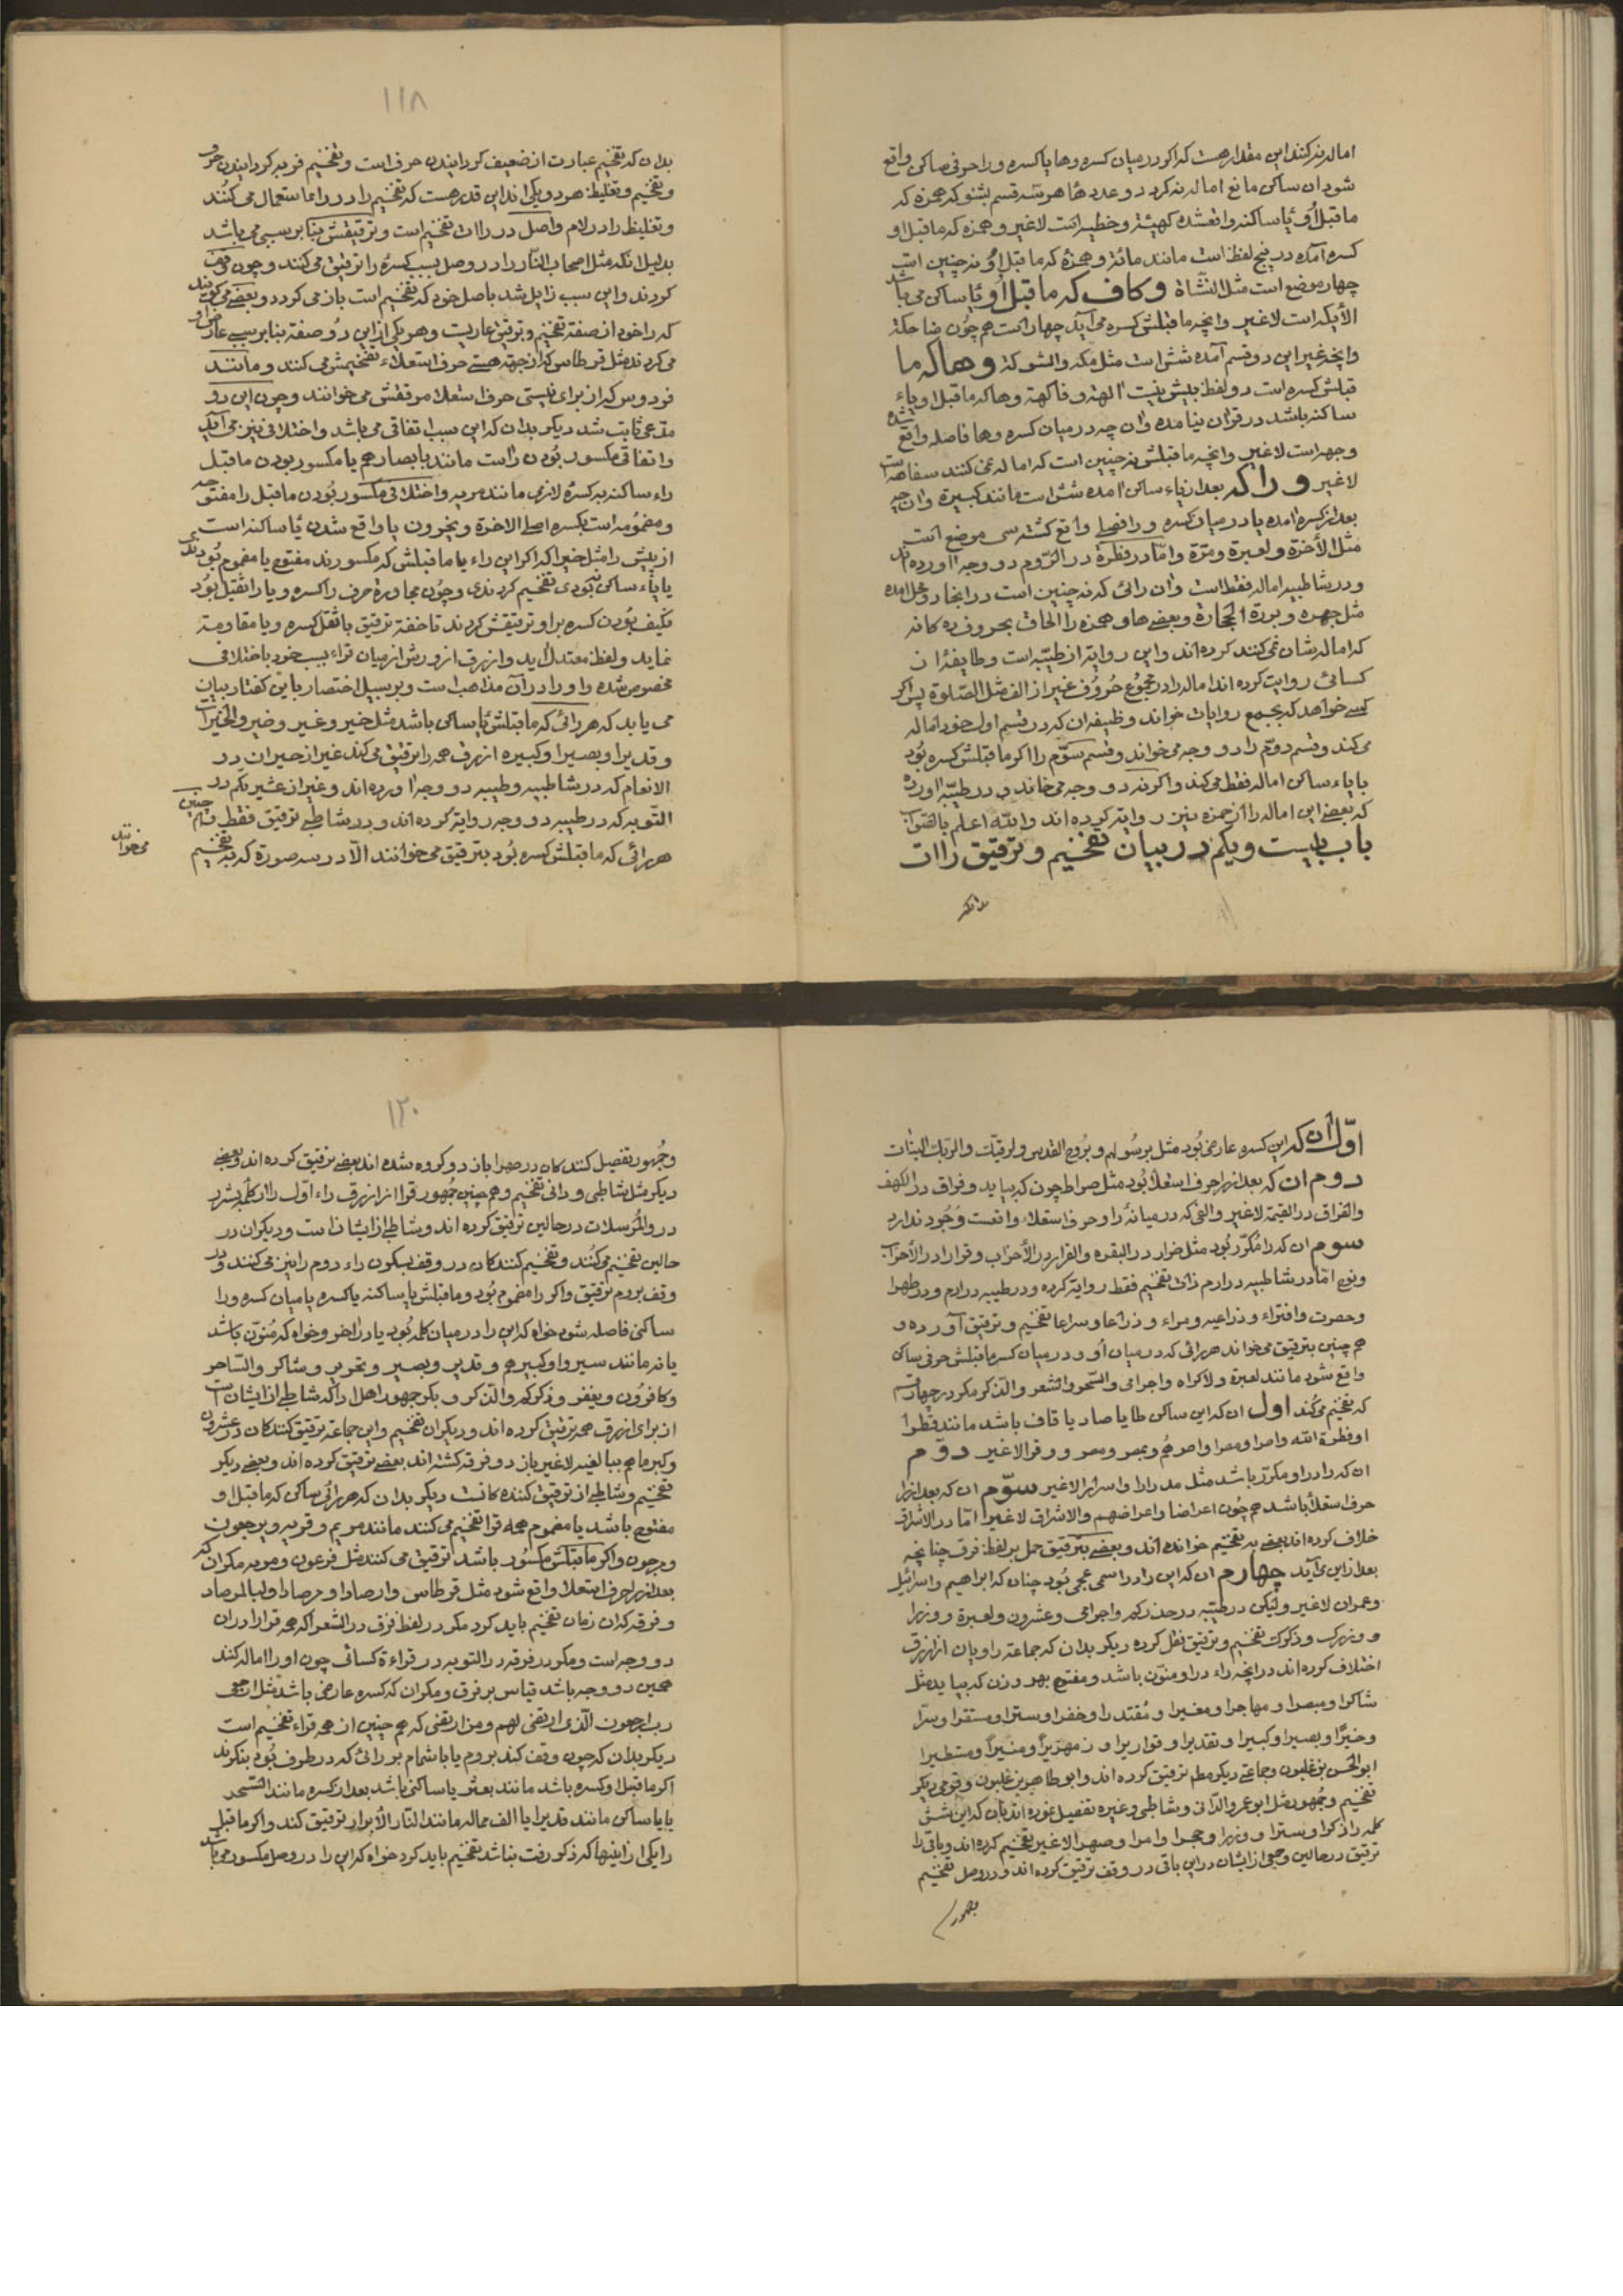 اماله نه کنند این مقدار هست که اکر در میان کسره و ها یا کسره و را حرفی ساکن واقع
شود ان ساکن مانع اماله نه کردد و عدد ها هر سه قسم بشنو که همزه که
ما قبل او یا ساکنه واقعشده کهیئة و خطیه است لاغیر و همزه که ماقبل او
کسره آمده در پنج لفظ است مانند مائة و همزه که ما قبل او نه چنین است
چهار موضع است مثل النشاة و کاف که ما قبل او یا ساکن می باشد
الأیکه است لاغیر و انچه ما قبلش کسره می آید چهار است هم چون ضاحکة
و انچه غیر این دو قسم آمده شش است مثل مکه و الشوکة و ها که ما
قبلش کسره است دو لفظ بیش نیست الهة و فاکهة و ها که ما قبل او یاء
ساکنه باشد در قران نیامده و ان چه در میان کسره و ها فاصله واقع شده
وجهه است لاغیر و انچه ما قبلش نه چنین است که اماله نمی کنند سفاهة است
لاغیر و را که بعد از یاء ساکن امده شش است مانند کبیرة و ان چه
بعد از کسره امده یا در میان کسره و را فصلی واقع کشته سی موضع است
مثل الأخرة و لعبرة و مرة و اما در فطرة در الروم دو وجه اورده اند
و در شاطبیه اماله فقط است و ان رائی که نه چنین است در اینجا دو محل امده
مثل جهرة و بردة الحجارة و بعضی ها و همزه را الحاق بحروف ده کانه
که اماله شان نمی کنند کرده اند و این روایة از طیبه است و طایفه از
کسائی روایت کرده اند اماله را در مجموع حروف غیر از الف مثل الصلوة پس اکر
کسی خواهد که بجمع روایات خواند وظیفه ان که در قسم اول خود اماله
می کند و قسم دوم را دو وجه می خواند و قسم سوم را اکر ما قبلش کسره بود
یا یاء ساکن اماله فقط می کند و اکر نه دو وجه می خواند و در طیبه اورده
که بعضی این اماله را از حمزه نیز روایة کرده اند والله اعلم بالصواب
باب بیست و یکم در بیان تفخیم و ترقیق راات
بدانکه
۱۱۸
بدان که تفخیم عبارت از ضعیف کردانیدن حرف است و تفخیم فربه کردانیدن حرف
و تفخیم و تغلیظ هر دو یکی اند این قدر هست که تفخیم را در راءها استعمال می کنند
و تغلیظ را در لام و اصل در راات تفخیم است و ترقیقش بنا بر سببی می باشد
بدلیل انکه مثل اصحاب النار را در وصل بسبب کسره را ترقیق می کنند و چون وقف
کردند و این سبب زایل شد باصل خود که تفخیم است باز می کردد و بعضی می کویند
که را خود از صفة تفخیم و ترقیق عاریست و هر یکی از این دو صفة بنا بر سببی عارض او
می کردند مثل قرطاس که از جهة هستی حرف استعلاء تفخیمش می کنند و مانند
فردوس که از برای نیستی حرف استعلا مرققش می خوانند و چون این دو
مدعی ثابت شد دیکر بدان که این سبب اتفاقی می باشد و اختلافی نیز می آید
و اتفاقی مکسور بودن راست مانند بابصارهم یا مکسور بودن ما قبل
راء ساکنه بکسره لازمی مانند مریه و اختلافی مکسور بودن ماقبل را مفتوحه
و مضمومه است بکسره اصلی الاخرة و یخرون یا واقع شدن یا ساکنه است
از پیش را مثل خیرا که اکر این راء یا ما قبلش که مکسورند مفتوح یا مضموم بودندی
یا یاء ساکن نبودی تفخیم کردندی و چون مجاورة حرف را کسره و یا را ثقیل بود
تکیف بودن کسره برا و ترقیقش کردند تا خفة ترقیق با ثقل کسره و یا مقاومة
نماید و لفظ معتدل اید و ازرق از ورش از میان قراء بسبب خود باختلافی
مخصوص شده و او را در آن مذاهب است و بر سبیل اختصار باین کفتار بیان
می یابد که هر رائی که ما قبلش یا ساکن باشد مثل خیر و غیر و ضیر و الخیرات
و قدیرا و بصیرا و کبیره ازرق همه را ترقیق می کند غیر از حیران در
الانعام که در شاطبیه و طیبه دو وجه اورده اند و غیر از عشیرتکم در
التوبه که در طیبه دو وجه روایة کرده اند و در شاطبی ترقیق فقط و هم چنین
هر رائی که ما قبلش کسره بود بترقیق می خوانند الا در سه صورة که بتفخیم
می خوانند
اول ان که این کسره عارضی بود مثل برسول و بروح القدس و لرقیک و الربک البنات
دوم ان که بعد از را حرف استعلا بود مثل صراط چون که بیاید و فراق در الکهف
والفراق در القیمة لاغیر و الفی که در میانه را و حرف استعلاء واقعست وجود ندارد
سوم ان که را مکرر بود مثل ضرار در البقره و الفرار در الأحزاب و فرارا در الأحزاب
و نوح اما در شاطبیه در ارم ذات تفخیم فقط روایة کرده و در طیبه در ارم و در طهرا
و حصرت و افتراء و ذراعیه و مراء و ذراعا و سراعا تفخیم و ترقیق آورده و
هم چنین بترقیق می خواند هر رائی که در میان او و در میان کسر ما قبلش حرفی ساکن
واقع شود مانند لعبرة و لا کراه و اجرامی و السحر و الشعر و الذکر مکر در چهار قسم
که تفخیم می کند اول ان که این ساکن طا یا صاد یا قاف باشد مانند قطرا
او فطرة الله و اصرا و مصرا و اصرهم و بمصر و مصر و وقرا لاغیر دوم
ان که را در او مکرر باشد مثل مدرارا و اسرارا لاغیر سوم ان که بعد از را
حرف استعلا باشد هم چون اعراضا و اعراضهم و الاشراق لاغیر اما در الاشراق
خلاف کرده اند بعضی به تفخیم خوانده اند و بعضی بترقیق حمل بر لفظ فرق چنانچه
بعد از این می آید چهارم ان که این را در اسمی عجمی بود چنان که ابراهیم و اسرائیل
و عمران لاغیر و لیکن در طیبه در حذرکم و اجرامی و عشرون و لعبرة و وزرا
و وزرک و ذکرک تفخیم و ترقیق نقل کرده دیکر بدان که جماعة راویان از ازرق
اختلاف کرده اند در انچه راء در او منون باشد و مفتوح بهر وزن که بیاید مثل
شاکرا و مبصرا و مهاجرا و مغیرا و مقتدرا و خضرا و سترا و مستقرا و سرا
و خیرا و بصیرا و کبیرا و تقدیرا و قواریرا و زمهریرا و منیرا و مستطیرا
ابو الحسن بن غلبون و جماعتی دیکر مطلق ترقیق کرده اند و ابو طاهر بن غلبون و قومی دیکر
تفخیم و جمهور مثل ابو عمرو الدانی و شاطبی و غیره تفصیل نموده اند بان که این شش
کلمه را ذکرا و سترا و وزرا و حجرا و امرا و صهرا لاغیر تفخیم کرده اند و باقی را
ترقیق در حالین و جمعی از ایشان در این باقی در وقف ترقیق کرده اند و در وصل تفخیم
و جمهور
۱۲۰
و جمهور تفصیل کنندکان در صهرا باز دو کروه شده اند بعضی ترقیق کرده اند و بعضی
دیکر مثل شاطبی و دانی تفخیم و هم چنین جمهور قرا از ازرق راء اول را از کلمه بشرر
در والمرسلات در حالین ترقیق کرده اند و شاطبی از ایشانست و دیکران در
حالین تفخیم می کنند و تفخیم کنندکان در وقف بسکون راء دوم را نیز می کنند و در
وقف بروم ترقیق و اکر را مضموم بود و ما قبلش یا ساکنه یا کسره یا میان کسره و را
ساکنی فاصله شود خواه که این را در میان کلمه بود یا در اخر و خواه که منون باشد
یا نه مانند سیروا و کبیرهم و قدیر و بصیر و تحریر و شاکر و الساحر
و کافرون و یغفر و ذکرکم و الذکر و بکر جمهور اهل ادا که شاطبی از ایشان است
از برای ازرق همه ترقیق کرده اند و دیکران تفخیم و این جماعة ترقیق کنندکان در عشرون
و کبر ما هم ببالغیه لاغیر باز دو فرقه کشته اند بعضی ترقیق کرده اند و بعضی دیکر
تفخیم و شاطبی از ترقیق کننده کانست دیکر بدان که هر رائی ساکن که ما قبل او
مفتوح باشد یا مضموم همه قرا تفخیم می کنند مانند مریم و قریه و یرجعون
و یرجون و اکر ما قبلش مکسور باشد ترقیق می کنند مثل فرعون و مریه مکر ان که
بعد از را حرف استعلا واقع شود مثل قرطاس و ارصادا و مرصادا و لبالمرصاد
و فرقه که ان زمان تفخیم باید کرد مکر در لفظ فرق در الشعرا که همه قرا را در ان
دو وجه است و مکر در فرقه در التوبه در قراءة کسائی چون او را اماله کنند
همین دو وجه باشد قیاس بر فرق و مکر ان که کسره عارضی باشد مثل ارجعی
رب ارجعون الذی ارتضی لهم و من ارتضی که هم چنین از همه قراء تفخیم است
دیکر بدان که چون وقف کند بروم یا باشمام بر رائی که در طرف بود بنکرند
اکر ما قبل او کسره باشد مانند بعثر یا ساکنی باشد بعد از کسره مانند السحر
یا یا ساکن مانند قدیر ایا الف ممالة مانند النار الابرار ترقیق کند و اکر ما قبل
را یکی از اینها که ذکر رفت نباشد تفخیم باید کرد خواه که این را در وصل مکسور می باشد